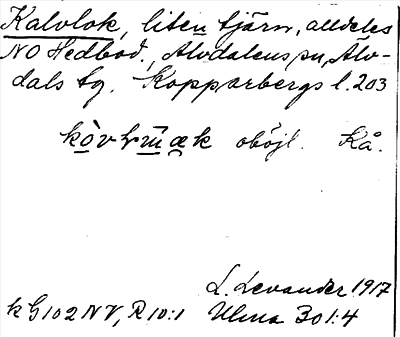 Kalvlok, liten tjärn, alldeles
NO Hedbod., Älvdalens sn, Älv-
dals tg. Kopparbergs l. 203
oböjl. Kå.
L. Levander 1917
kG102NV, R10:1 Ulma 301:4